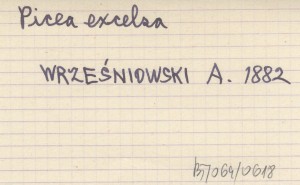 Picea excelsa
WRZEŚNIOWSKI A. 1882
B7/064/0618